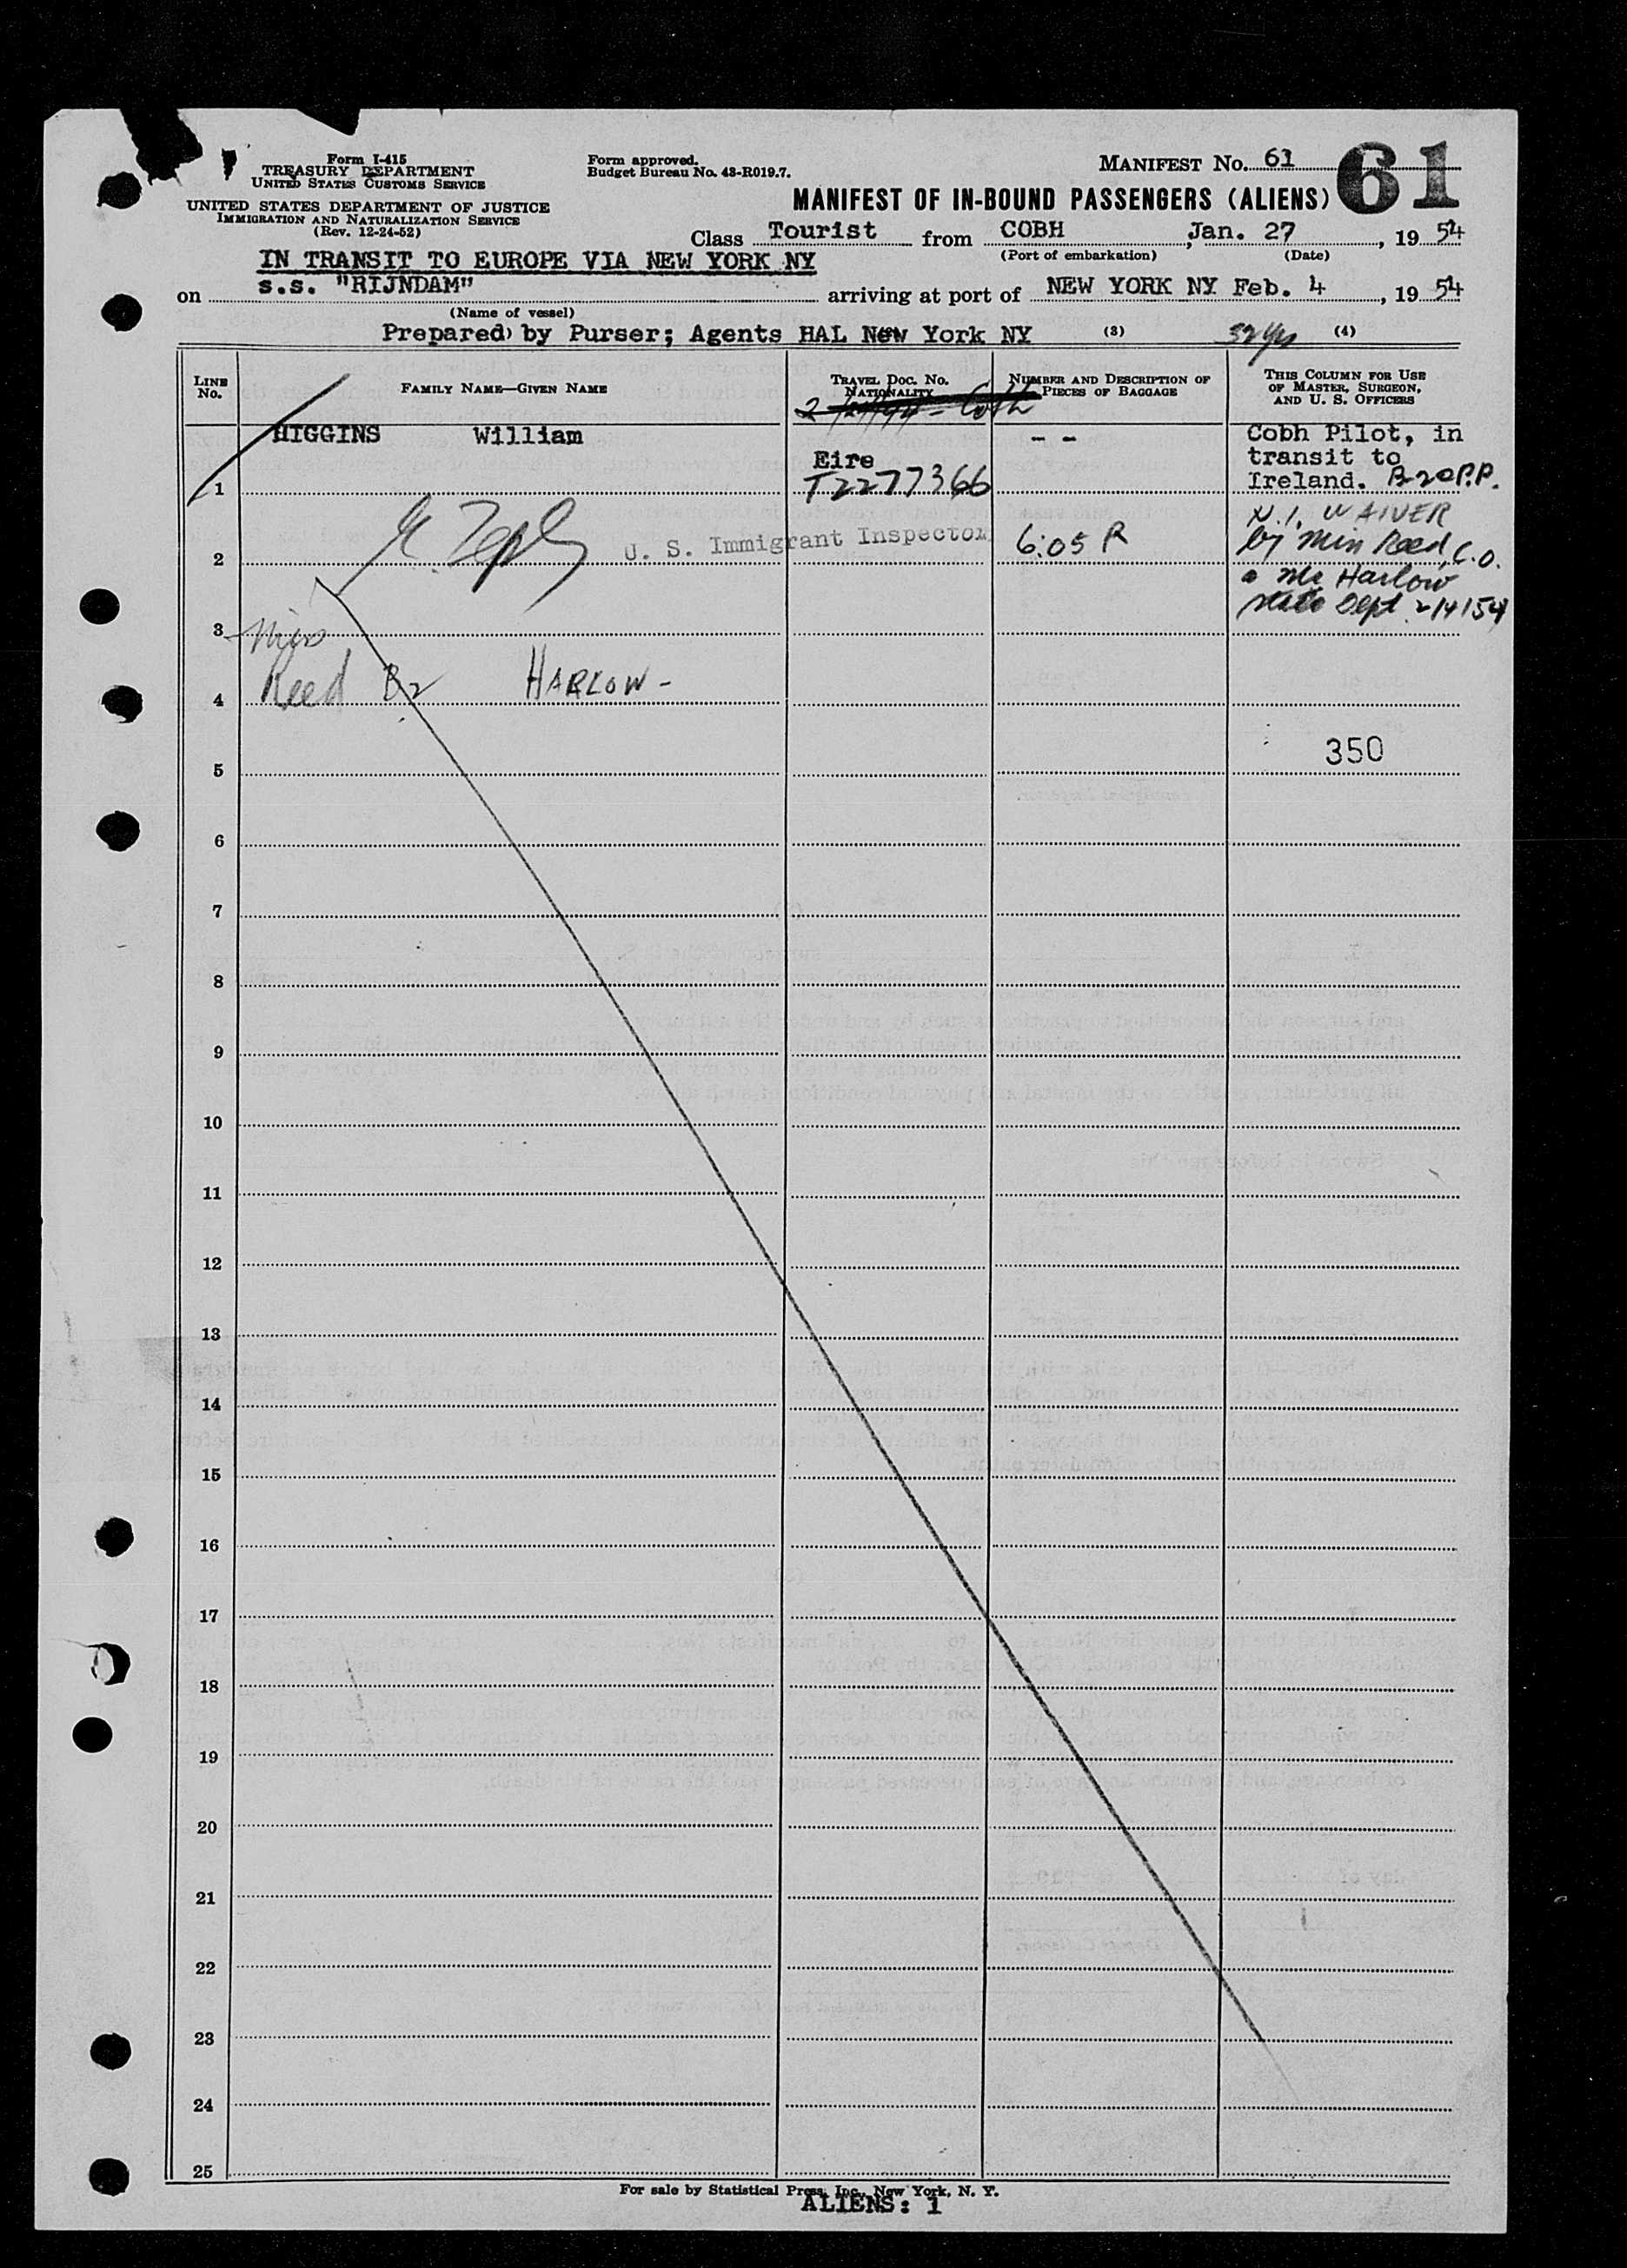 Form I-415
TREASURY DEPARTMENT
UNITED STATES CUSTOMS SERVICE
UNITED STATES DEPARTMENT OF JUSTICE
IMMIGRATION AND NATURALIZATION SERVICE
(Rev. 12-24-52)
Form approved.
Budget Bureau No. 43-R019.7.
MANIFEST No. 61
61
MANIFEST OF IN-BOUND PASSENGERS (ALIENS)
Class Tourist from COBH, Jan. 27, 1954
(Port of embarkation) (Date)
IN TRANSIT TO EUROPE VIA NEW YORK NY
on s.s. "RIJNDAM" arriving at port of NEW YORK NY Feb. 4, 1954
(Name of vessel)
Prepared by Purser; Agents HAL New York NY (3) 52 yrs (4)
LINE No.
FAMILY NAME—GIVEN NAME
TRAVEL DOC. No. NATIONALITY
NUMBER AND DESCRIPTION OF PIECES OF BAGGAGE
THIS COLUMN FOR USE OF MASTER, SURGEON, AND U. S. OFFICERS
HIGGINS William - - Cobh Pilot, in
Eire transit to
1 T2277366 Ireland. B-20P.P.
N.I. WAIVER
2 U. S. Immigrant Inspector 6:05 R by Miss Reed, C.O.
Mr Harlow
State Dept. 2/4/54
3 Miss
4 Reed B2 HARLOW -
350
5
6
7
8
9
10
11
12
13
14
15
16
17
18
19
20
21
22
23
24
25
For sale by Statistical Press, Inc., New York, N. Y.
ALIENS: 1